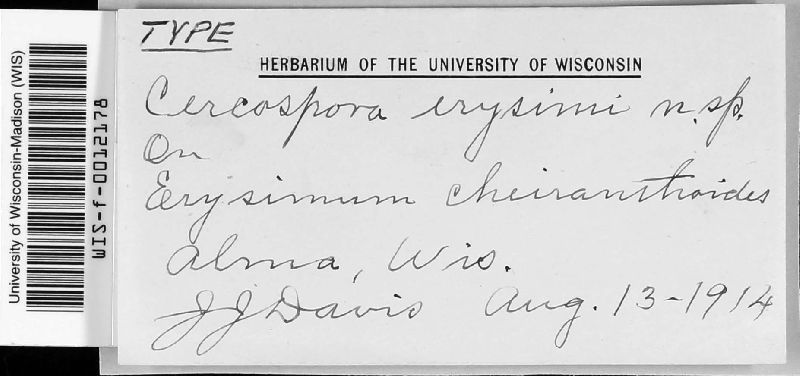 TYPE
HERBARIUM OF THE UNIVERSITY OF WISCONSIN
Cercospora erysimi n.sp.
On
Erysimum cheiranthoides
Alma, Wis.
JJ Davis Aug. 13-1914
University of Wisconsin-Madison (WIS)
WIS-f-0012178